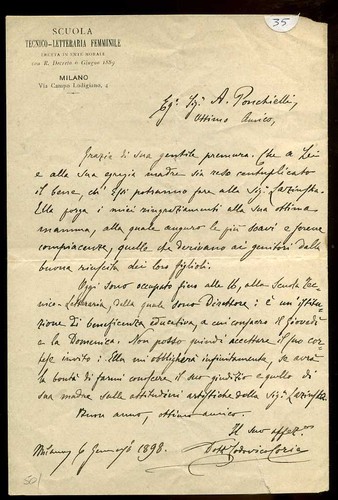 35
SCUOLA
TECNICO-LETTERARIA FEMMINILE
ERETTA IN ENTE MORALE
con R. Decreto 6 Giugno 1889
MILANO
Via Campo Lodigiano, 4
Eg. Sigr A. Ponchielli,
Ottimo Amico,
Grazie di sua gentile premura. Che a Lei
e alla sua egregia madre sia reso centuplicato
il bene, ch'Essi potranno fare alla Sigra
Ella porga i miei ringraziamenti alla Sua ottima
mamma, alla quale auguro le più soavi e
compiacenze, quelle che derivano ai genitori dalla
buona riuscita dei loro figlioli.
Oggi sono occupato fino alle 16, alla Scuola Tec-
nico-Letteraria, della quale sono Direttore: è un'istitu-
zione di beneficenza educativa, a cui consacro il Giovedì
e la Domenica. Non posso quindi accettare il suo cor-
tese invito: Ella mi obbligherà infinitamente, se avrà
la bontà di farmi conoscere il suo giudizio e quello di
sua madre sulle attitudini artistiche della Sigra
Buon anno, ottimo amico.
Il suo
Milano, 6 Gennajo 1898.
Dott Lodovico Corio